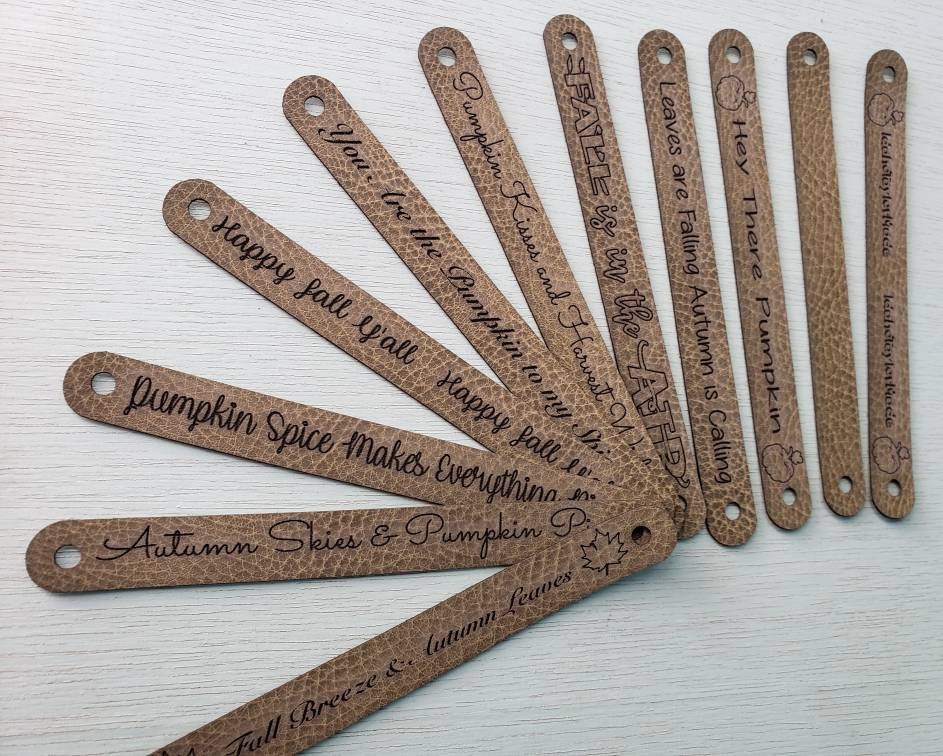 Fall Breeze & Autumn Leaves
Autumn Skies & Pumpkin
Pumpkin Spice Makes Everything
Happy fall y'all Happy fall
You Are the Pumpkin to my
Pumpkin Kisses and Harvest
FALL is in the AIR
Leaves are Falling Autumn is Calling
Hey There Pumpkin